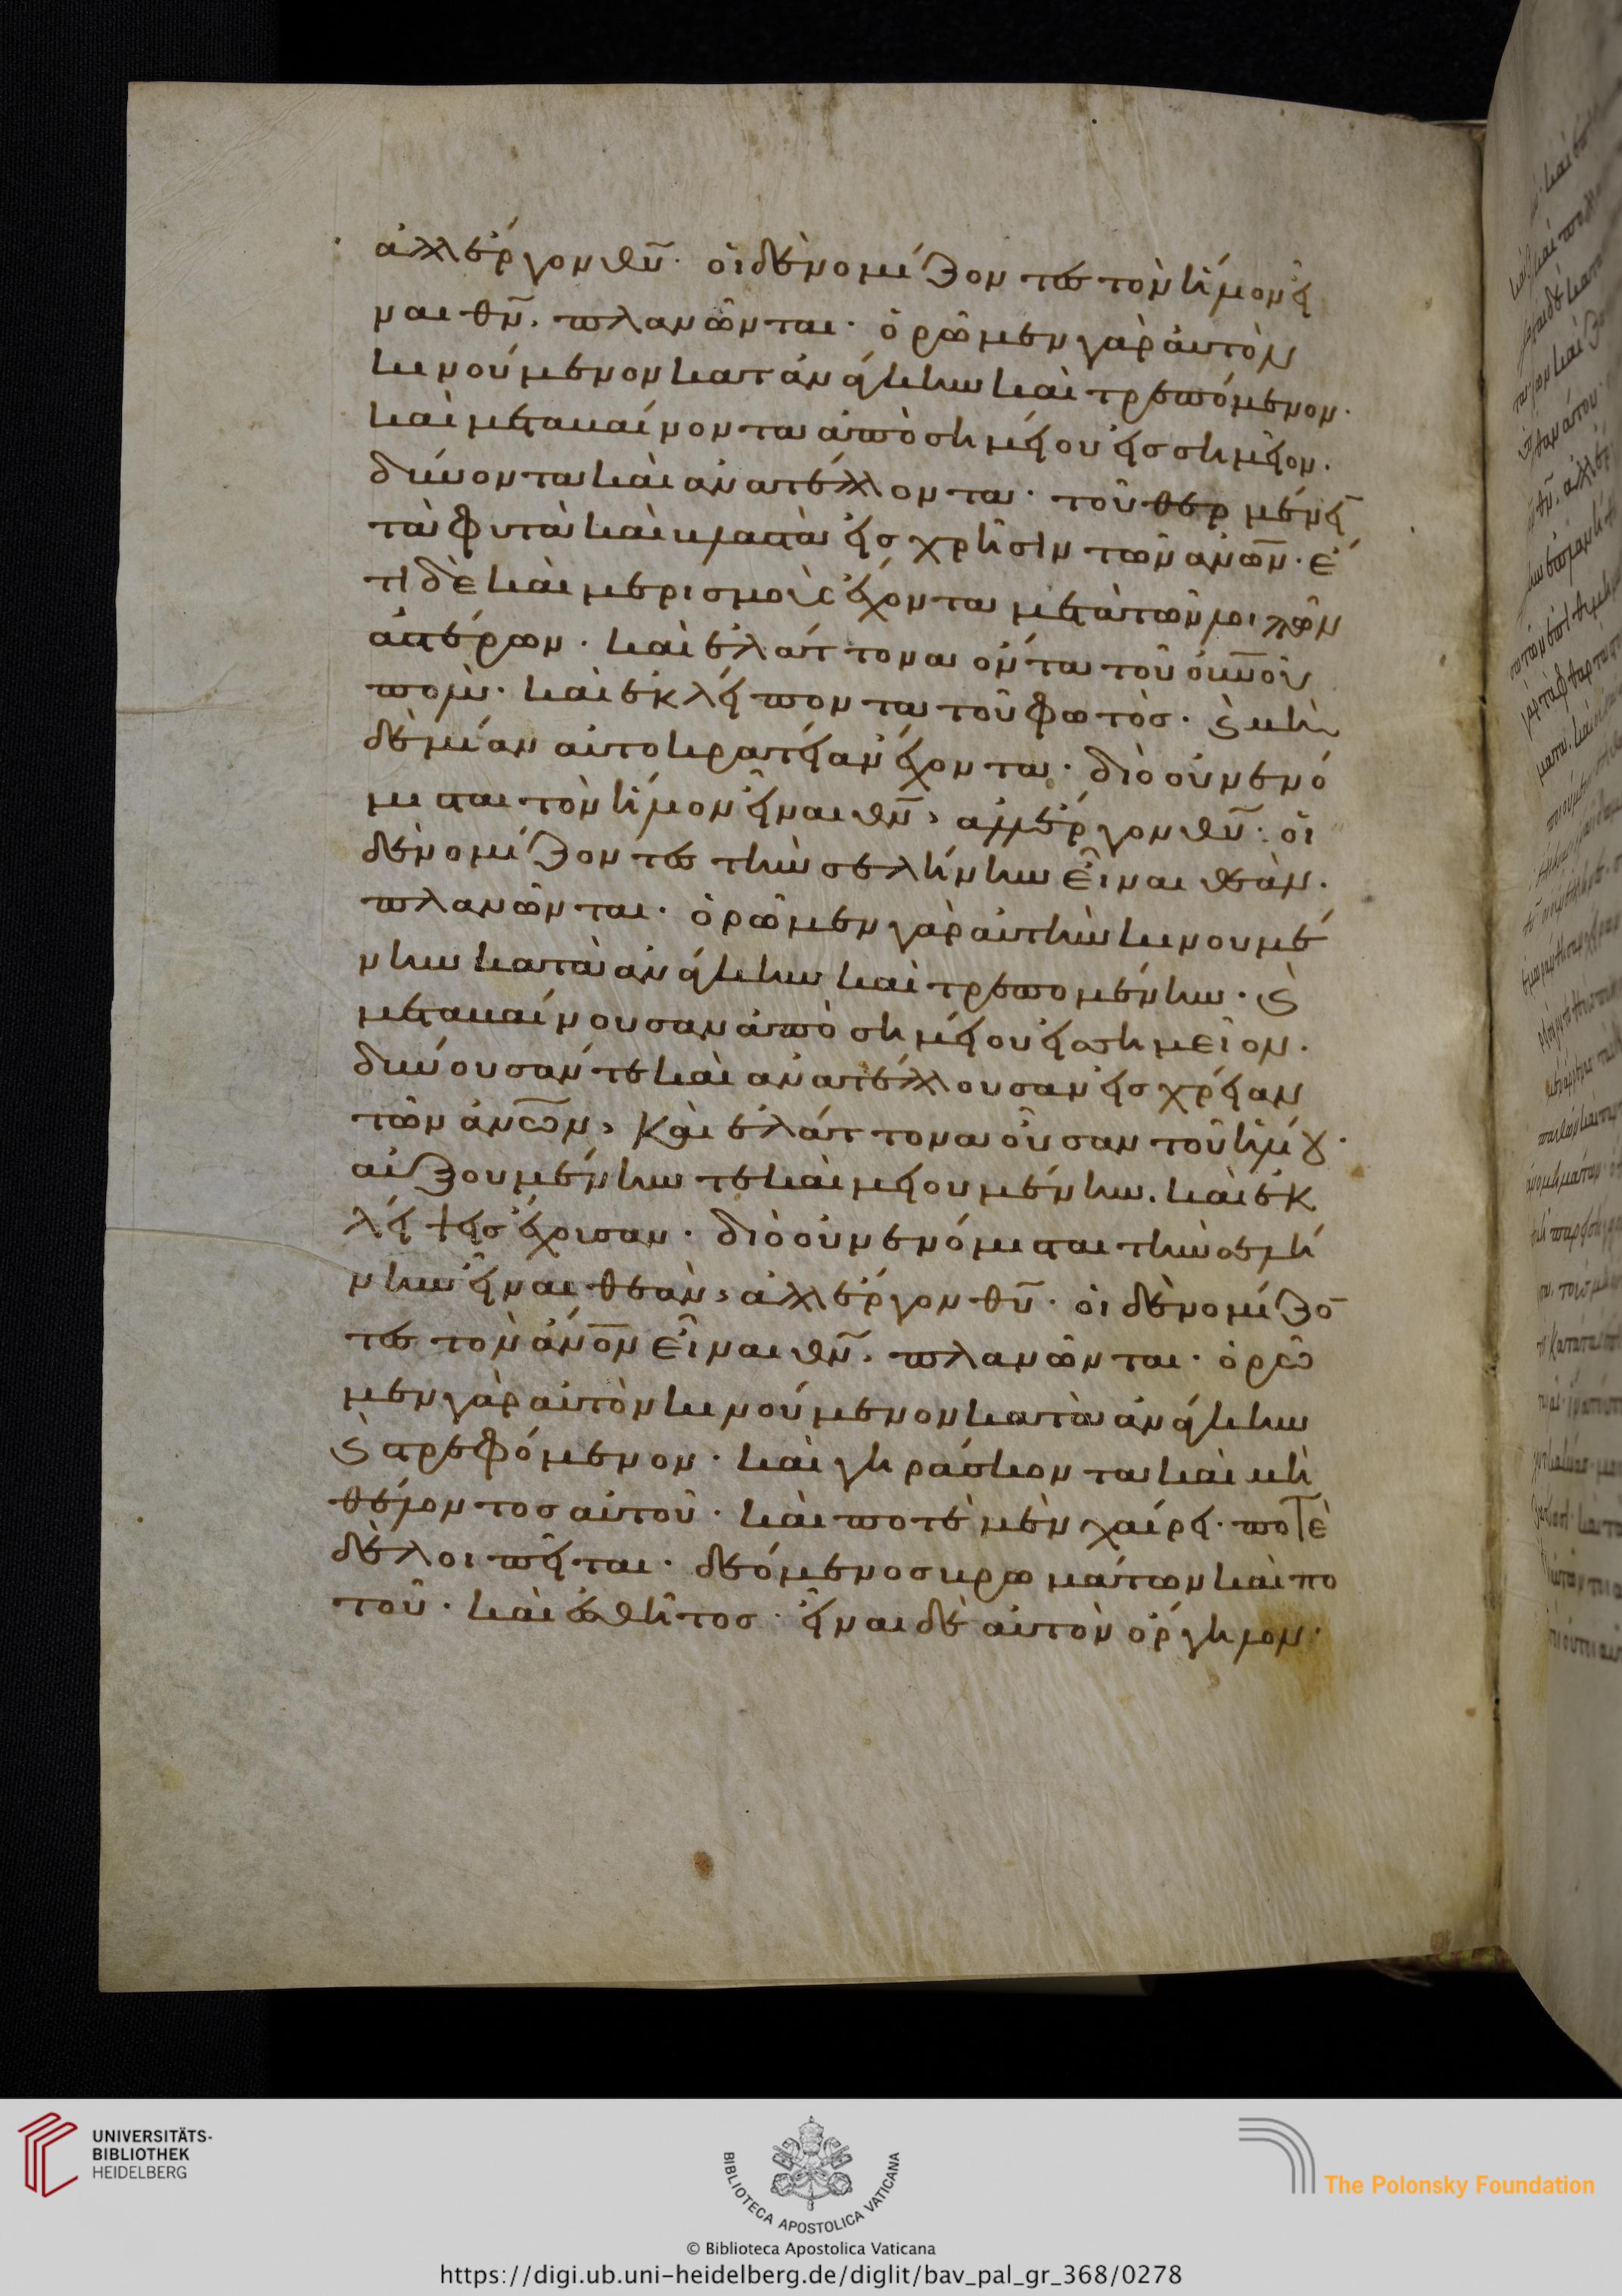 ἀλλ' ἔργον θῦ· οἱ δὲ νομίζοντες τὸν ἥλιον εἶ
ναι θν̄, πλανῶνται· ὁρῶμεν γὰρ αὐτὸν
κινούμενον κατὰ ἀνάγκην καὶ τρεπόμενον·
καὶ μεταβαίνοντα ἀπὸ σημείου εἰς σημεῖον·
δύνοντα καὶ ἀνατέλλοντα· τοῦ θερμένειν
τὰ φυτὰ καὶ βλαστὰ εἰς χρῆσιν τῶν ἀνων̄· ἔ
τι δὲ καὶ μερισμοὺς ἔχοντα μετὰ τῶν λοιπῶν
ἀστέρων· καὶ ἐλάττονα ὄντα τοῦ οὐνοῦ
πολὺ· καὶ ἐκλείποντα τοῦ φωτὸς· ϗ μη
δεμίαν αὐτοκρατείαν ἔχοντα· διὸ οὐ νενό
μισται τὸν ἥλιον εἶναι θν̄, ἀλλ' ἔργον θῦ· οἱ
δὲ νομίζοντες τὴν σελήνην εἶναι θεὰν·
πλανῶνται· ὁρῶμεν γὰρ αὐτὴν κινουμέ
νην κατὰ ἀνάγκην καὶ τρεπομένην· ϗ
μεταβαίνουσαν ἀπὸ σημείου εἰς σημεῖον·
δύνουσάν τε καὶ ἀνατέλλουσαν εἰς χρείαν
τῶν ἀνων̄, καὶ ἐλάττονα οὖσαν τοῦ ἡλίου·
αὐξουμένην τε καὶ μειουμένην. καὶ ἐκ
λείψεις ἔχουσαν· διὸ οὐ νενόμισται τὴν σελή
νην εἶναι θεὰν, ἀλλ' ἔργον θῦ· οἱ δὲ νομίζο̄
τες τὸν ἀνον̄ εἶναι θν̄, πλανῶνται· ὁρῶ
μεν γὰρ αὐτὸν κινούμενον κατὰ ἀνάγκην
ϗ τρεφόμενον· καὶ γηράσκοντα καὶ μὴ
θέλοντος αὐτοῦ· καὶ ποτὲ μὲν χαίρει· ποτὲ
δὲ λοιπεῖται· δεόμενος βρωμάτων καὶ πο
τοῦ· καὶ ἐσθῆτος· εἶναι δὲ αὐτὸν ὀργήλον·
UNIVERSITÄTS-
BIBLIOTHEK
HEIDELBERG
BIBLIOTECA APOSTOLICA VATICANA
The Polonsky Foundation
© Biblioteca Apostolica Vaticana
https://digi.ub.uni-heidelberg.de/diglit/bav_pal_gr_368/0278